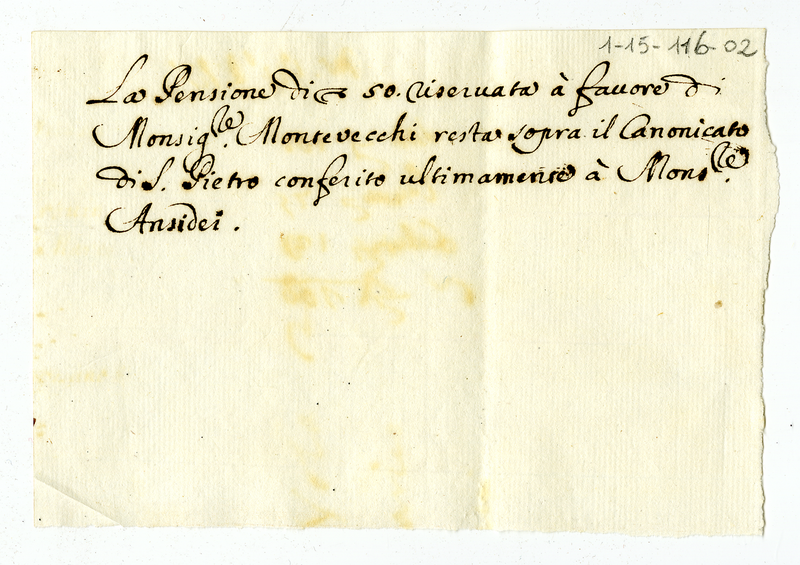 1-15-116-02
La Pensione di 50. riservata à favore di
Monsig.re Montevecchi resta sopra il Canonicato
di S. Pietro conferito ultimamente à Mons.re
Ansidei.